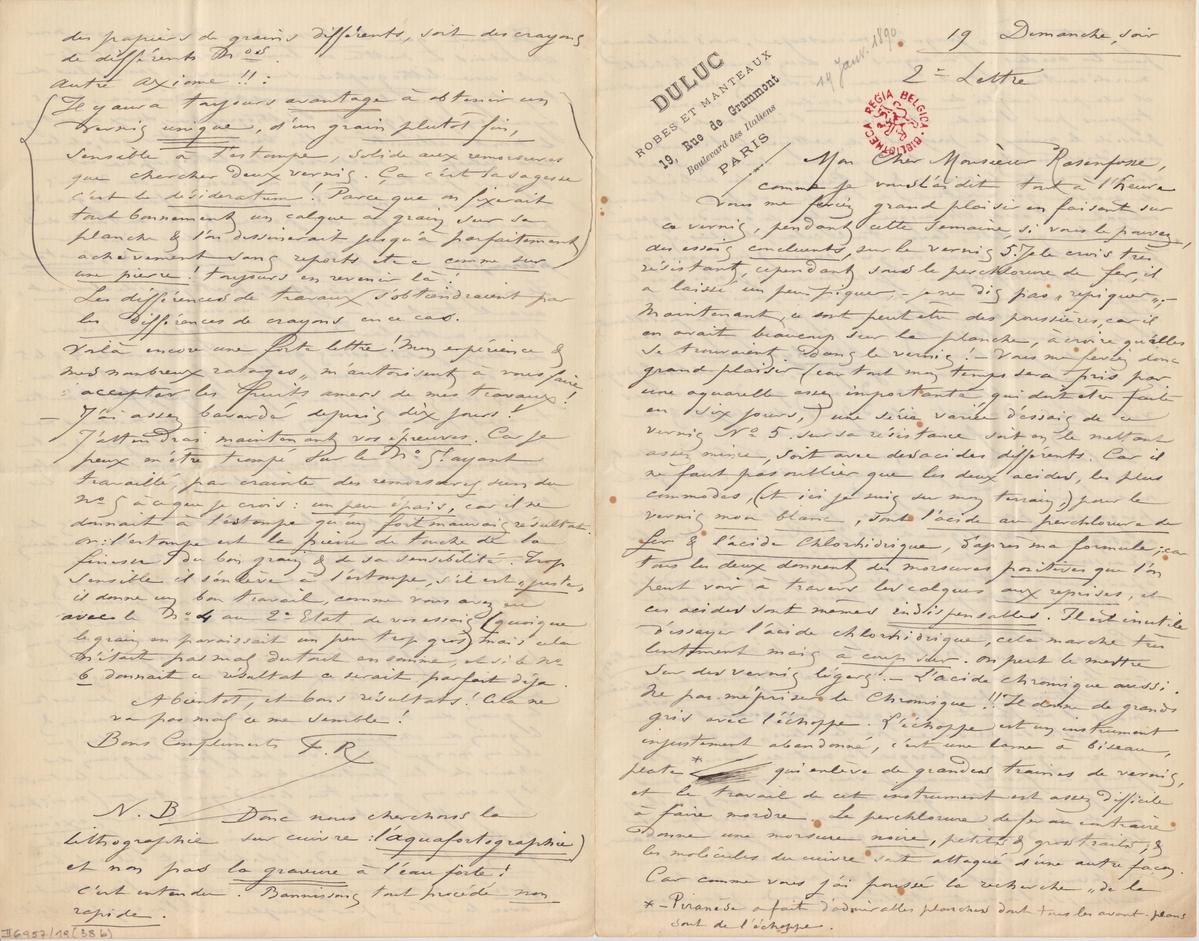 19 Demanche, soir
14 Janv. 1890
2e Lettre
DULUC
ROBES ET MANTEAUX
19, Rue de Grammont
Boulevard des Italiens
PARIS
BIBLIOTHECA REGIA BELGICA
Mon Cher Monsieur Rasenfosse,
comme je vous l'ai dit tout à l'heure
vous me feriez grand plaisir en faisant sur
ce vernis, pendant cette semaine, si vous le pouvez,
des essais concluents, sur le vernis 5. Je le crois très
résistant, cependant sous le perchlorure de fer, il
a laissé un peu piquer, - je ne dis pas „repiquer„. -
Maintenant, ce sont peut être des poussières, car il
en avait beaucoup sur la planche, à croire qu'elles
se trouvaient dans le vernis! - Vous me ferez donc
grand plaisir (car tout mon temps sera pris par
une aquarelle assez importante, qui doit être faite
en six jours,) une série variée d'essais de ce
vernis No 5. sur sa résistance soit en le mettant
assez mince, soit avec des acides différents. Car il
ne faut pas oublier que les deux acides, les plus
commodes, (et ici je suis sur mon terrain,) pour le
vernis mou blanc, sont l'acide au perchlorure de
fer & l'acide Chlorhidrique, d'après ma formule; car
tous les deux donnent des morsures positives que l'on
peut voir à travers les calques aux reprises, et
ces acides sont mêmes indispensables. Il est inutile
d'essayer l'acide chlorhidrique, cela marche très
lentement mais à coup sur. on peut le mettre
sur des vernis légers. - L'acide chromique aussi.
Ne pas mépriser le Chromique!! Il donne de grands
gris avec l'échoppe. L'échoppe est un instrument
injustement abandonné, c'est une lame à biseau,
* qui enlève de grandes traines de vernis,
et le travail de cet instrument est assez difficile
à faire mordre. Le perchlorure de fer au contraire
donne une morsure noire, petits & gros traits, &
les molécules du cuivre sont attaqué d'une autre façon.
Car comme vous j'ai poussé la recherche „de la
* - Piranèse a fait d'admirables planches dont tous les avant-plans
sont de l'échoppe.
des papiers de grains différents, soit des crayons
de différents Nos.
Autre axiome!!:
Il y aura toujours avantage à obtenir un
vernis unique, d'un grain plutôt fin,
sensible à l'estompe, solide aux remorsures
que chercher deux vernis. Ça c'est la sagesse
c'est le desideratum! Parce que on fixerait
tout bonnement un calque à grain sur sa
planche & l'on dessinerait jusqu'à parfaitement
achèvement sans reports etc comme sur
une pierre! toujours en revenir là!
Les différences de travaux s'obtiendraient par
les différences de crayons en ce cas.
Voilà encore une forte lettre! Mon expérience &
mes nombreux ratages„ m'autorisent à vous faire
accepter les fruits amers de mes travaux!
- J'ai assez bavarder depuis dix jours!
J'attendrai maintenant vos épreuves. Car je
peux m'être trompé sur le No 5! ayant
travaillé, par crainte des remorsures sur du
No 5 à ce que je crois: un peu épais, car il ne
donnait à l'estompe qu'un fort mauvais résultat.
or: l'estompe est la pierre de touche de la
finesse! du bon grain & de sa sensibilité. Trop
sensible il s'enlève à l'estompe, s'il est „juste„
il donne un bon travail, comme vous avez eu
avec le No 4 au 2e Etat de vos essais (quoique
le grain en paraissait un peu trop gros) mais cela
n'était pas mal du tout en somme, et si le no
6 donnait ce résultat ce serait parfait déjà.
A bientot, et bons résultats! Cela ne
va pas mal ce me semble!
Bons Compliments F. R
N. B Donc nous cherchons la
lithographie sur cuivre: l'aquafortographie)
et non pas la gravure à l'eau forte!
c'est entendu. Bannissons tout procédé non
rapide.
II 6957/19 (38 b)